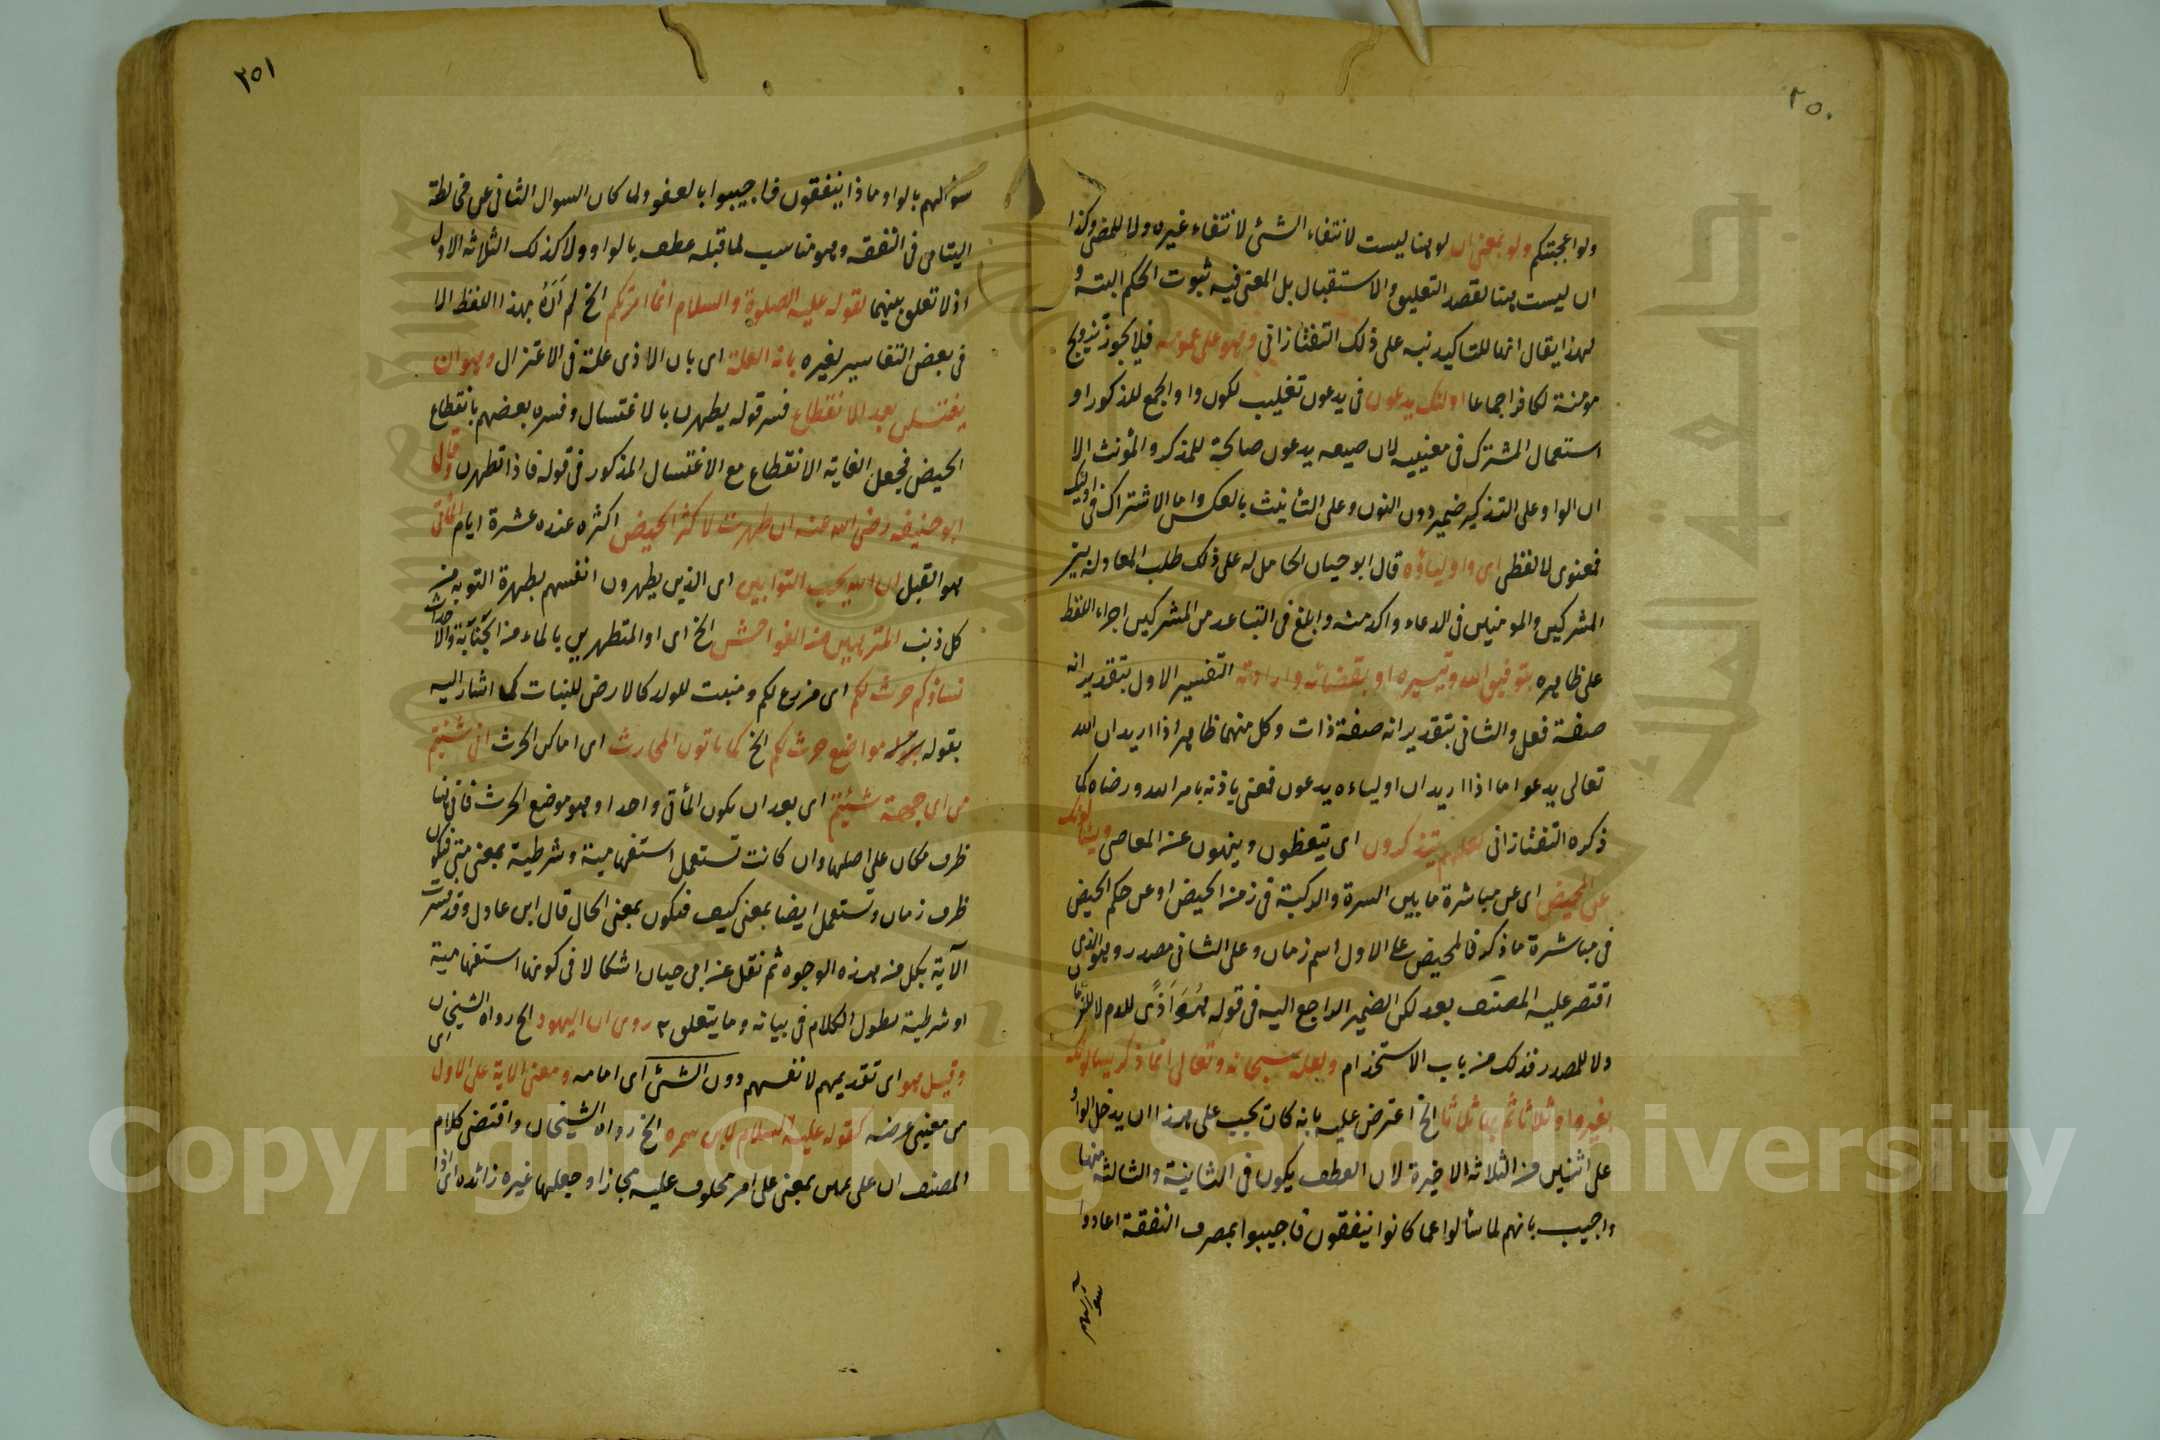 ٢٥٠
ولو اعجبتكم ولو بمعنى ان لو هنا ليست لانتفاء الشئ لانتفاء غيره ولا للمضى وكذا
ان ليست هنا لقصد التعليق والاستقبال بل المعنى فيه ثبوت الحكم البتة و
لهذا يقال انها للتاكيد نبه على ذلك التفتازانى وهو على عمومه فلا يجوز تزويج
مؤمنة لكافر اجماعا اولئك يدعون فى يدعون تغليب لكون واو الجمع للذكور او
استعمال المشترك فى معنييه لان صيعه يدعون صالحة للمذكر والمؤنث الا
ان الواو على التذكير ضمير دون النون وعلى التأنيث بالعكس واما الاشتراك فى اولئك
فمعنوى لا لفظى اى واولياؤه قال ابو حيان الحامل له على ذلك طلب المعادلة بين
المشركين والمومنين فى الدعاء واكد منه وابلغ فى التباعد من المشركين اجراء اللفظ
على ظاهره بتوفيق الله وتيسيره او بقضائه وارادته التفسير الاول بتقدير انه
صفة فعل والثانى بتقدير انه صفة ذات وكل منهما ظاهر اذا اريد ان الله
تعالى يدعو اما اذا اريد ان اولياءه يدعون فمعنى باذنه بامر الله ورضاه كما
ذكره التفتازانى لعلهم يتذكرون اى يتعظون وينهون عن المعاصى ويسألونك
عن المحيض اى عن مباشرة ما بين السرة والركبة فى زمن الحيض او عن حكم الحيض
فى مباشرة ما ذكر فالمحيض على الاول اسم زمان وعلى الثانى مصدر وهو الذى
اقتصر عليه المصنف بعد لكن الضمير الراجع اليه فى قوله هُوَ أَذًى للدم لا للزمان
ولا للمصدر فذلك من باب الاستخدام ولعله سبحانه وتعالى انما ذكر يسالونك
بغير واو ثلاثا ثم بها ثلاثا الخ اعترض عليه بانه كان يجب على هذا ان يدخل الواو
على اثنين من الثلاثه الاخيرة لان العطف يكون فى الثانية والثالثة منها
واجيب بانهم لما سألوا عما كانوا ينفقون فاجيبوا بمصرف النفقة اعادوا
سوالهم
٢٥١
سؤالهم بالواو ماذا ينفقون فاجيبوا بالعفو ولما كان السوال الثانى عن مخالطة
اليتامى فى النفقه وهو مناسب لما قبله عطف بالواو ولا كذلك الثلاثه الاول
اذ لا تعلق بينهما لقوله عليه الصلوة والسلام انما امرتكم الخ لم أَرَهُ بهذا اللفظ الا
فى بعض التفاسير لغيره بانه العلة اى بان الاذى علة فى الاعتزال وهو ان
يغتسلن بعد الانقطاع فسر قوله يطهرن بالاغتسال وفسره بعضهم بانقطاع
الحيض فجعل الغاية الانقطاع مع الاغتسال المذكور فى قوله فاذا تطهرن وقال
ابو حنيفه رضى الله عنه ان طهرت لاكثر الحيض اكثره عنده عشرة ايام المأتى
هو القبل ان الله يحب التوابين اى الذين يطهرون انفسهم بطهرة التوبه من
كل ذنب المتنزهين من الفواحش الخ اى او المتطهرين بالماء من الجنابة والاحداث
نساؤكم حرث لكم اى مزرع لكم ومنبت للولد كالارض للنبات كما اشار اليه
بقوله مواضع حرث لكم الخ كما تاتون المحارث اى اماكن الحرث انى شئتم
من اى جهة شئتم اى بعد ان يكون المأتى واحدا وهو موضع الحرث فانى هنا
ظرف مكان على اصلها وان كانت تستعمل استفهامية وشرطية بمعنى متى فتكون
ظرف زمان وتستعمل ايضا بمعنى كيف فتكون بمعنى الحال قال ابن عادل وقد فسرت
الآية بكل من هذه الوجوه ثم نقل عن ابى حيان اشكالا فى كونها استفهامية
او شرطية يطول الكلام فى بيانه وما يتعلق به روى ان اليهود الخ رواه الشيخان
وقيل هو اى تقديمهم لانفسهم دون الشئ اى امامه ومعنى الاية على الاول اى
من معنيى عرضه لقوله عليه السلام لابن سمره الخ رواه الشيخان واقتضى كلام
المصنف ان على يمين بمعنى على امر محلوف عليه مجازا وجعلها غيره زائده اى اذا